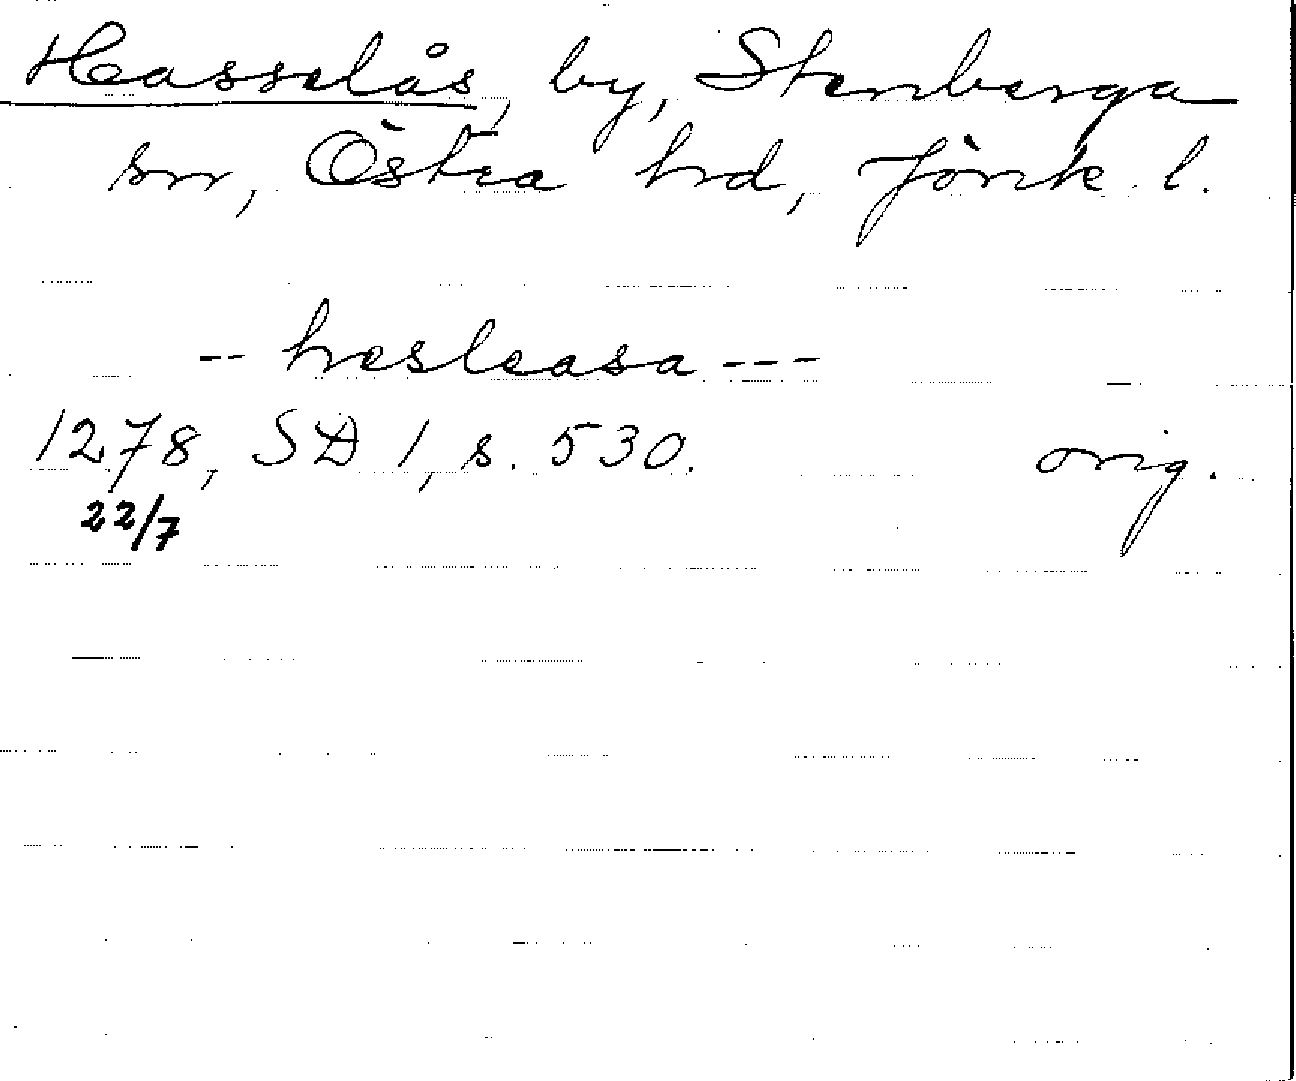 Hasselås, by, Stenberga
sn, Östra hd, Jönk. l.
-- hesleasa ---
1278, SD 1, s. 530. orig.
22/7